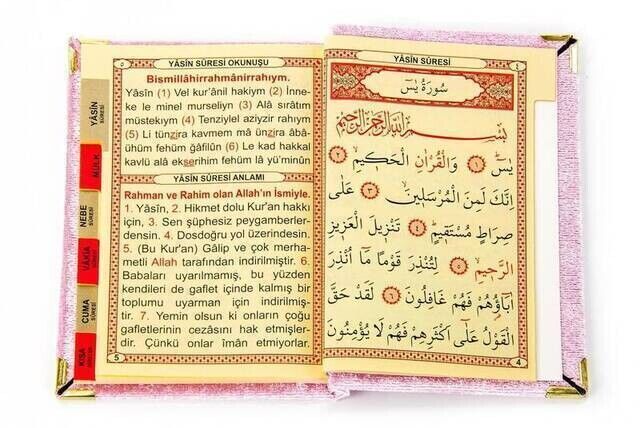 YÂSİN SÛRESİ
MÜLK
NEBE SÛRESİ
VÂKIA SÛRESİ
CUMA SÛRESİ
KISA
٥
YÂSİN SÛRESİ OKUNUŞU
Bismillâhirrahmânirrahıym.
Yâsîn (1) Vel kur'ânil hakiym (2) İnne-
ke le minel murseliyn (3) Alâ sırâtım
müstekıym (4) Tenziylel aziyzir rahıym
(5) Li tünzira kavmem mâ ünzira âbâ-
ühüm fehüm ğâfilûn (6) Le kad hakkal
kavlü alâ ekserihim fehüm lâ yü'minûn
YÂSİN SÛRESİ ANLAMI
Rahman ve Rahim olan Allah'ın İsmiyle.
1. Yâsîn, 2. Hikmet dolu Kur'an hakkı
için, 3. Sen şüphesiz peygamberler-
densin. 4. Dosdoğru yol üzerindesin.
5. (Bu Kur'an) Gâlip ve çok merha-
metli Allah tarafından indirilmiştir. 6.
Babaları uyarılmamış, bu yüzden
kendileri de gaflet içinde kalmış bir
toplumu uyarman için indirilmiş-
tir. 7. Yemin olsun ki onların çoğu
gafletlerinin cezâsını hak etmişler-
dir. Çünkü onlar îmân etmiyorlar.
5
YÂSİN SÛRESİ
٤
سُورَةُ يٰسۤ
بِسْمِ اللّٰهِ الرَّحْمٰنِ الرَّحِيمِ
يٰسۤ ١ وَالْقُرْاٰنِ الْحَكِيمِ ٢
اِنَّكَ لَمِنَ الْمُرْسَلِينَ ٣ عَلٰى
صِرَاطٍ مُسْتَقِيمٍ ٤ تَنْزِيلَ الْعَزِيزِ
الرَّحِيمِ ٥ لِتُنْذِرَ قَوْمًا مَٓا اُنْذِرَ
اٰبَٓاؤُهُمْ فَهُمْ غَافِلُونَ ٦ لَقَدْ حَقَّ
الْقَوْلُ عَلٰٓى اَكْثَرِهِمْ فَهُمْ لَا يُؤْمِنُونَ
4